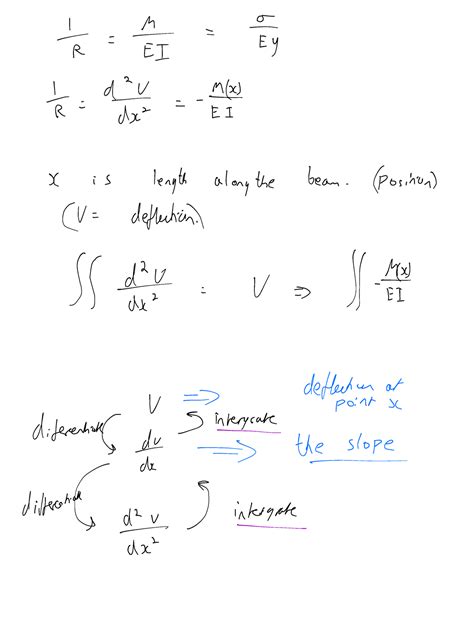 1/R = M/EI = σ/Ey
1/R = d²V/dx² = - M(x)/EI
x is length along the beam. (position)
(V = deflection.)
∬ d²V/dx² = V ⇒ ∬ -M(x)/EI
V ⇒ deflection at point x
differentiate intergrate
dv/dx ⇒ the slope
differentiate
d²v/dx² intergate